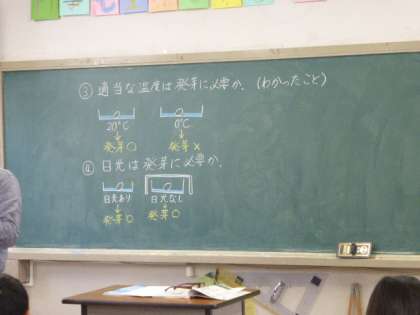 ③ 適当な温度は発芽に必要か。(わかったこと)
20℃ 0℃
↓ ↓
発芽○ 発芽×
④ 日光は発芽に必要か。
日光あり 日光なし
↓ ↓
発芽○ 発芽○